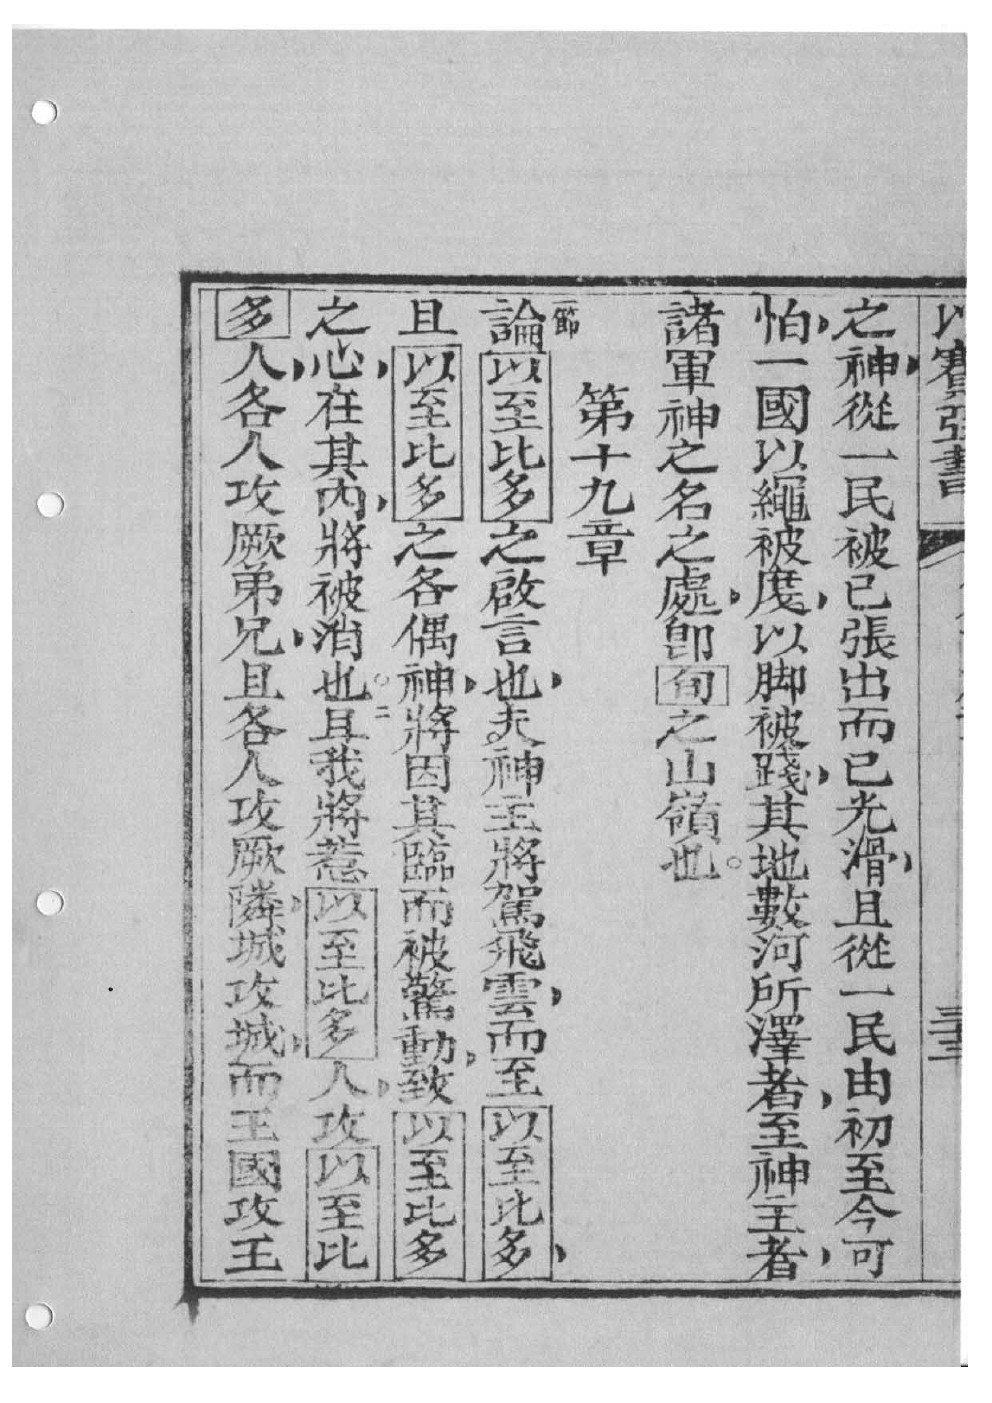 以賽亞書
三十三
之神、從一民被已張出而已光滑、且從一民由初至今可
怕、一國以繩被度、以脚被踐、其地數河所澤者、至神主者、
諸軍神之名之處、卽旬之山嶺也。
第十九章
一節論以至比多之啟言也、夫神主將駕飛雲、而至以至比多、
且以至比多之各偶神、將因其臨而被驚動、致以至比多
之心、在其內、將被消也。二且我將惹以至比多人、攻以至比
多人、各人攻厥弟兄、且各人攻厥隣、城攻城、而王國攻王